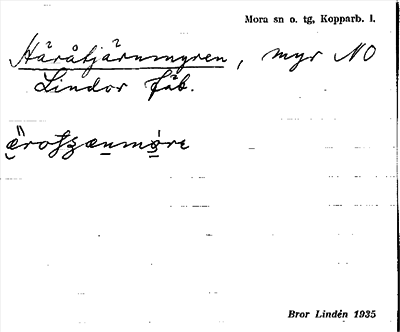 Mora sn o. tg, Kopparb. l.
Håråtjärnmyren, myr NO
Lindor fäb.
Bror Lindén 1935